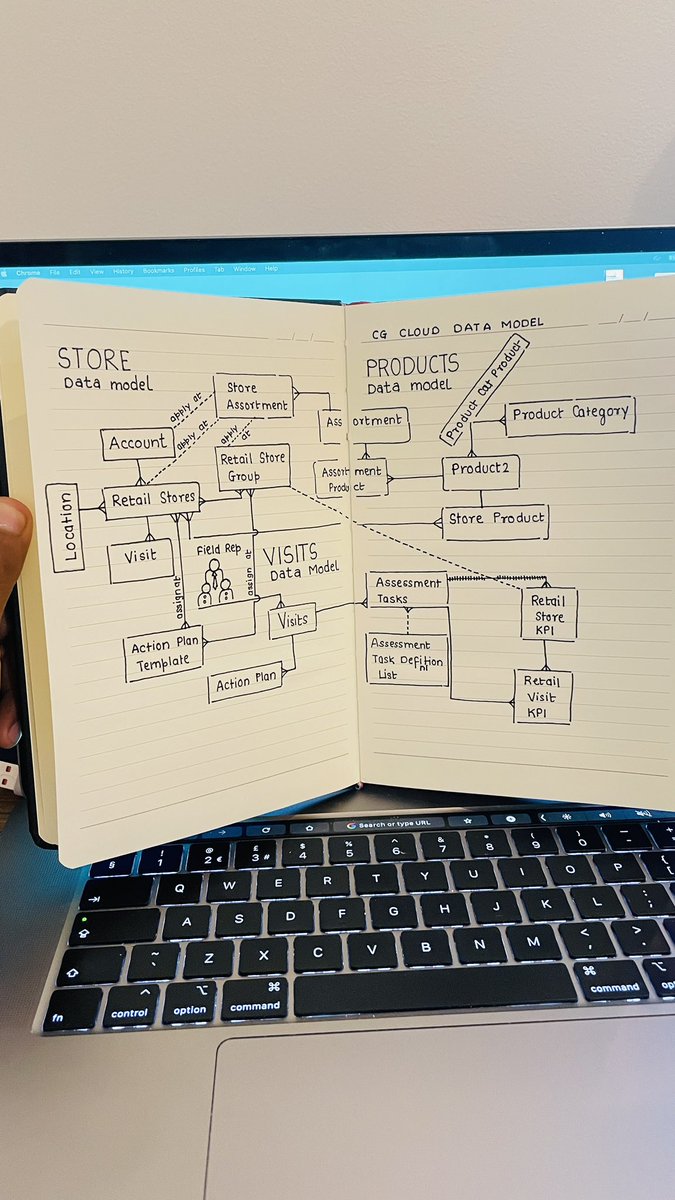 Chrome File Edit View History Bookmarks Profiles Tab Window Help
__/__/__
STORE
Data model
Store
Assortment
apply at
apply at
apply at
Account
Retail Store
Group
Location
Retail Stores
Visit
Field Rep
VISITS
Data Model
assign at
assign at
Action Plan
Template
Visits
Action Plan
CG CLOUD DATA MODEL
__/__/__
PRODUCTS
Data model
Product Cat Product
Assortment
Product Category
Assortment
Product
Product2
Store Product
Assessment
Tasks
Retail
Store
KPI
Assessment
Task Defition
ni
List
Retail
Visit
KPI
Search or type URL
§ 1 @ 2 € £ 3 # $ 4 % 5 ^ 6 & 7 * 8 ( 9 ) 0 - +
Q W E R T Y U I O P {
A S D F G H J K L : ;
~ ` Z X C V B N M < , > .
fn control option command command